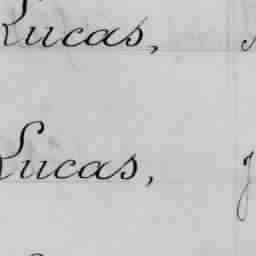 Lucas,
Lucas,